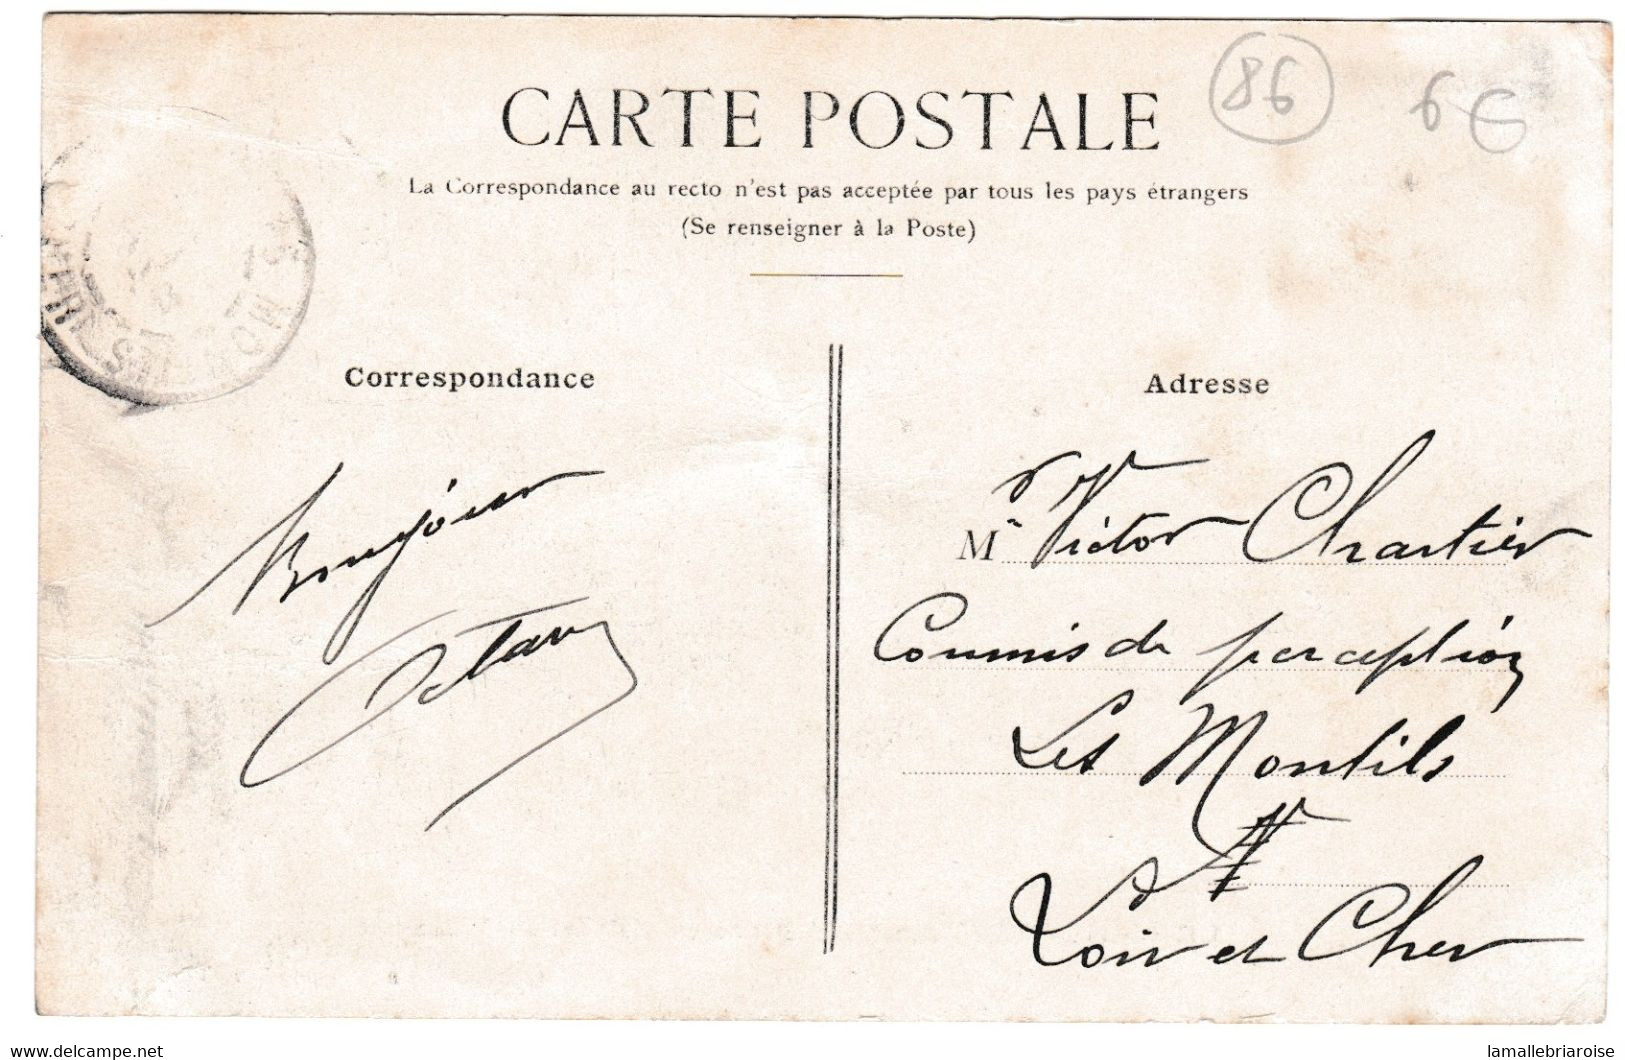 CARTE POSTALE
86
6
La Correspondance au recto n'est pas acceptée par tous les pays étrangers
(Se renseigner à la Poste)
Correspondance
Bonjour
Octave
Adresse
Mr Victor Chartier
Commis de perception
Les Montils
Loir et Cher
www.delcampe.net
lamallebriaroise